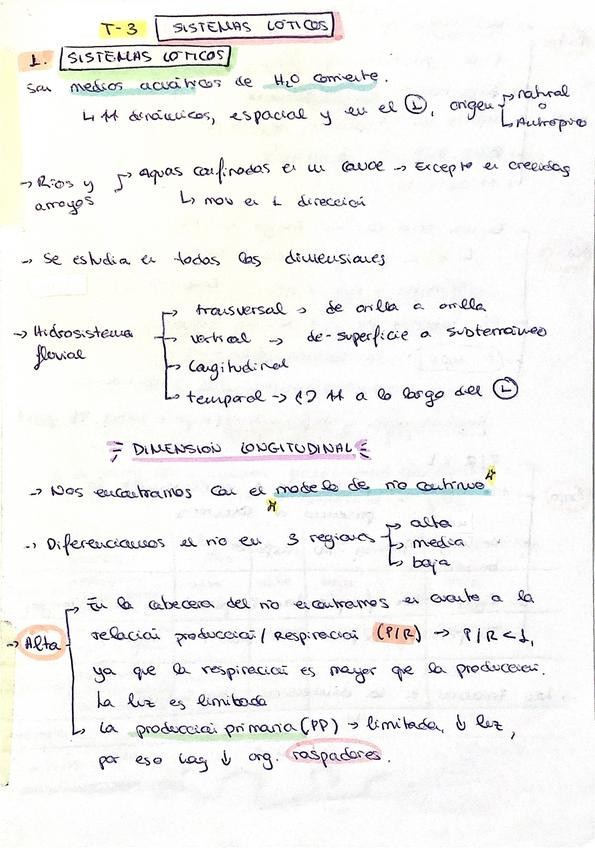 T-3 SISTEMAS LÓTICOS
1. SISTEMAS LOTICOS
Son medios acuáticos de H2O corriente.
↳ ↑↑ dinámicos, espacial y en el Ⓛ, origen → natural
o
→ Antrópico
→ Ríos y arroyos → aguas confinadas en un cauce → Excepto en crecidas
↳ mov en 1 dirección
→ Se estudia en todas las dimensiones
→ Hidrosistema fluvial
→ transversal → de orilla a orilla
→ vertical → de-superficie a subterráneo
→ Longitudinal
→ temporal → ↑↑ a lo largo del Ⓛ
DIMENSION LONGITUDINAL
→ Nos encontramos con el modelo de río continuo
→ Diferenciamos el río en 3 regiones → alta
→ media
→ baja
→ Alta → En la cabecera del río encontramos en cuanto a la
relación producción/Respiración (P/R) → P/R<1,
ya que la respiración es mayor que la producción.
La luz es limitada
→ La producción primaria (PP) → limitada, ↓ luz,
por eso hay ↓ org. raspadores.